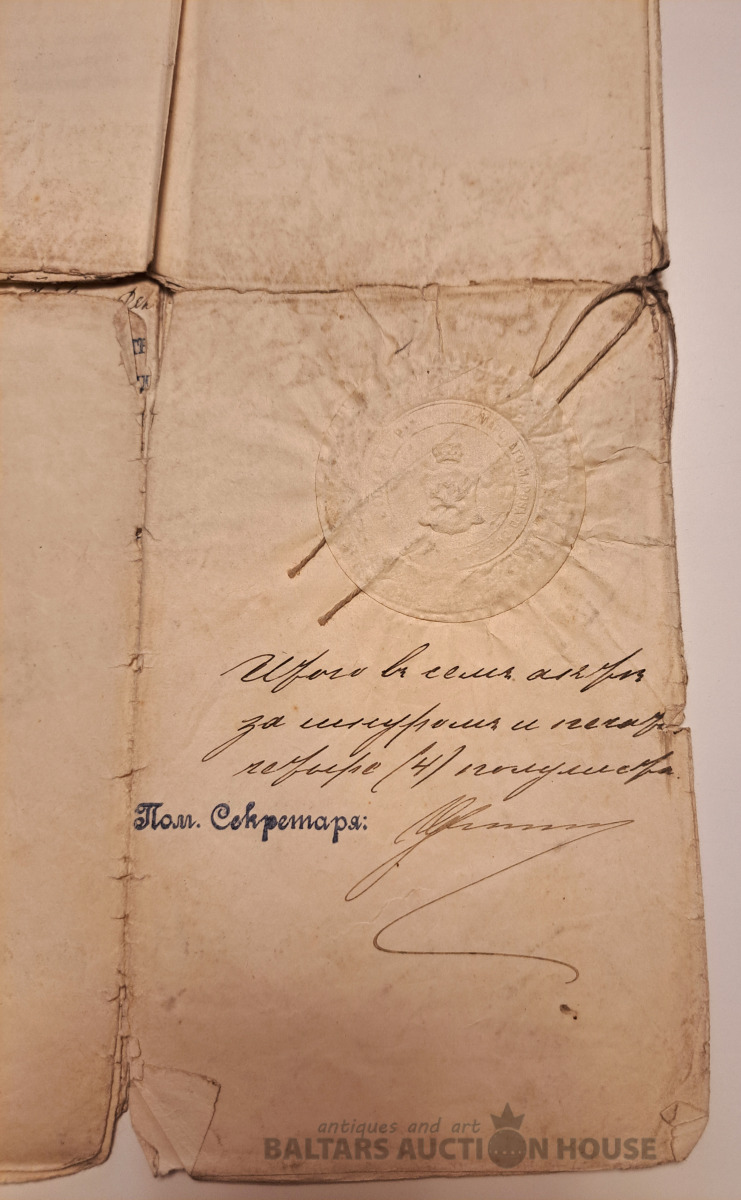 Итого въ семъ актѣ
за шнуромъ и печат.
четыре (4) полулиста.
Пом. Секретаря:
antiques and art
BALTARS AUCTION HOUSE